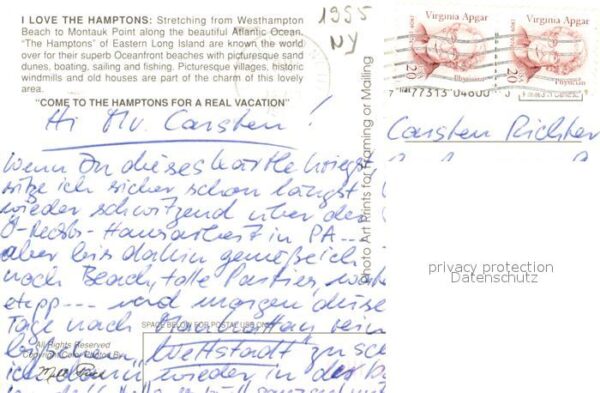 I LOVE THE HAMPTONS: Stretching from Westhampton
Beach to Montauk Point along the beautiful Atlantic Ocean.
"The Hamptons" of Eastern Long Island are known the world
over for their superb Oceanfront beaches with picturesque sand
dunes. boating, sailing and fishing. Picturesque villages, historic
windmills and old houses are part of the charm of this lovely
area.
"COME TO THE HAMPTONS FOR A REAL VACATION"
1995
NY
Virginia Apgar
Physician
20
Virginia Apgar
Physician
20
77313 04600
Hi Mr. Carsten!
Wenn Du diese Karte kriegst
sitze ich sicher schon längst
wieder schwitzend über der
Ö-Rechts-Hausarbeit in PA---
aber bis dahin genieße ich
noch Beach, tolle Parties,
etcpp--- und morgen diese
Tage nach Manhattan,
Weltstadt zu
wieder in
Carsten Richter
Photo Art Prints for Framing or Mailing
SPACE BELOW FOR POSTAL USE ONLY
All Rights Reserved
privacy protection
Datenschutz